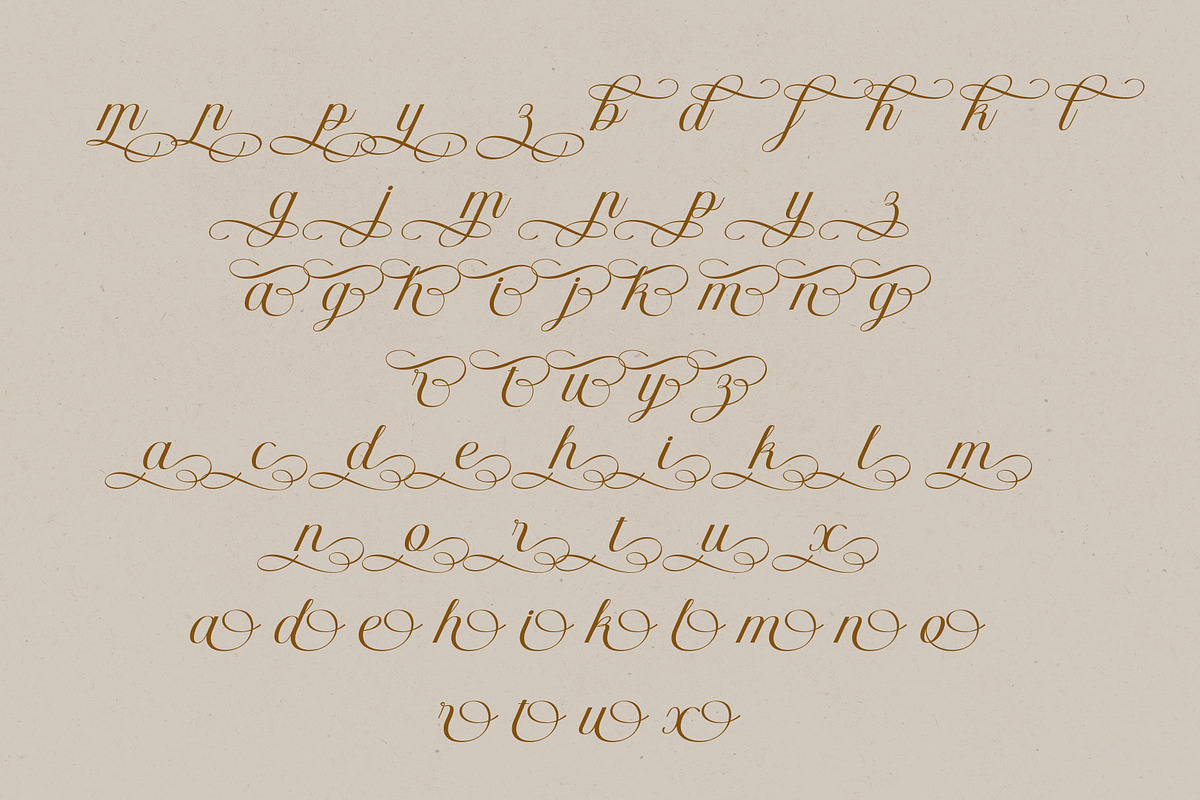 m n p y z b d f h k l
g j m n p y z
a g h i j k m n g
r t u y z
a c d e h i k l m
n o r t u x
a d e h i k l m n o
r t u x